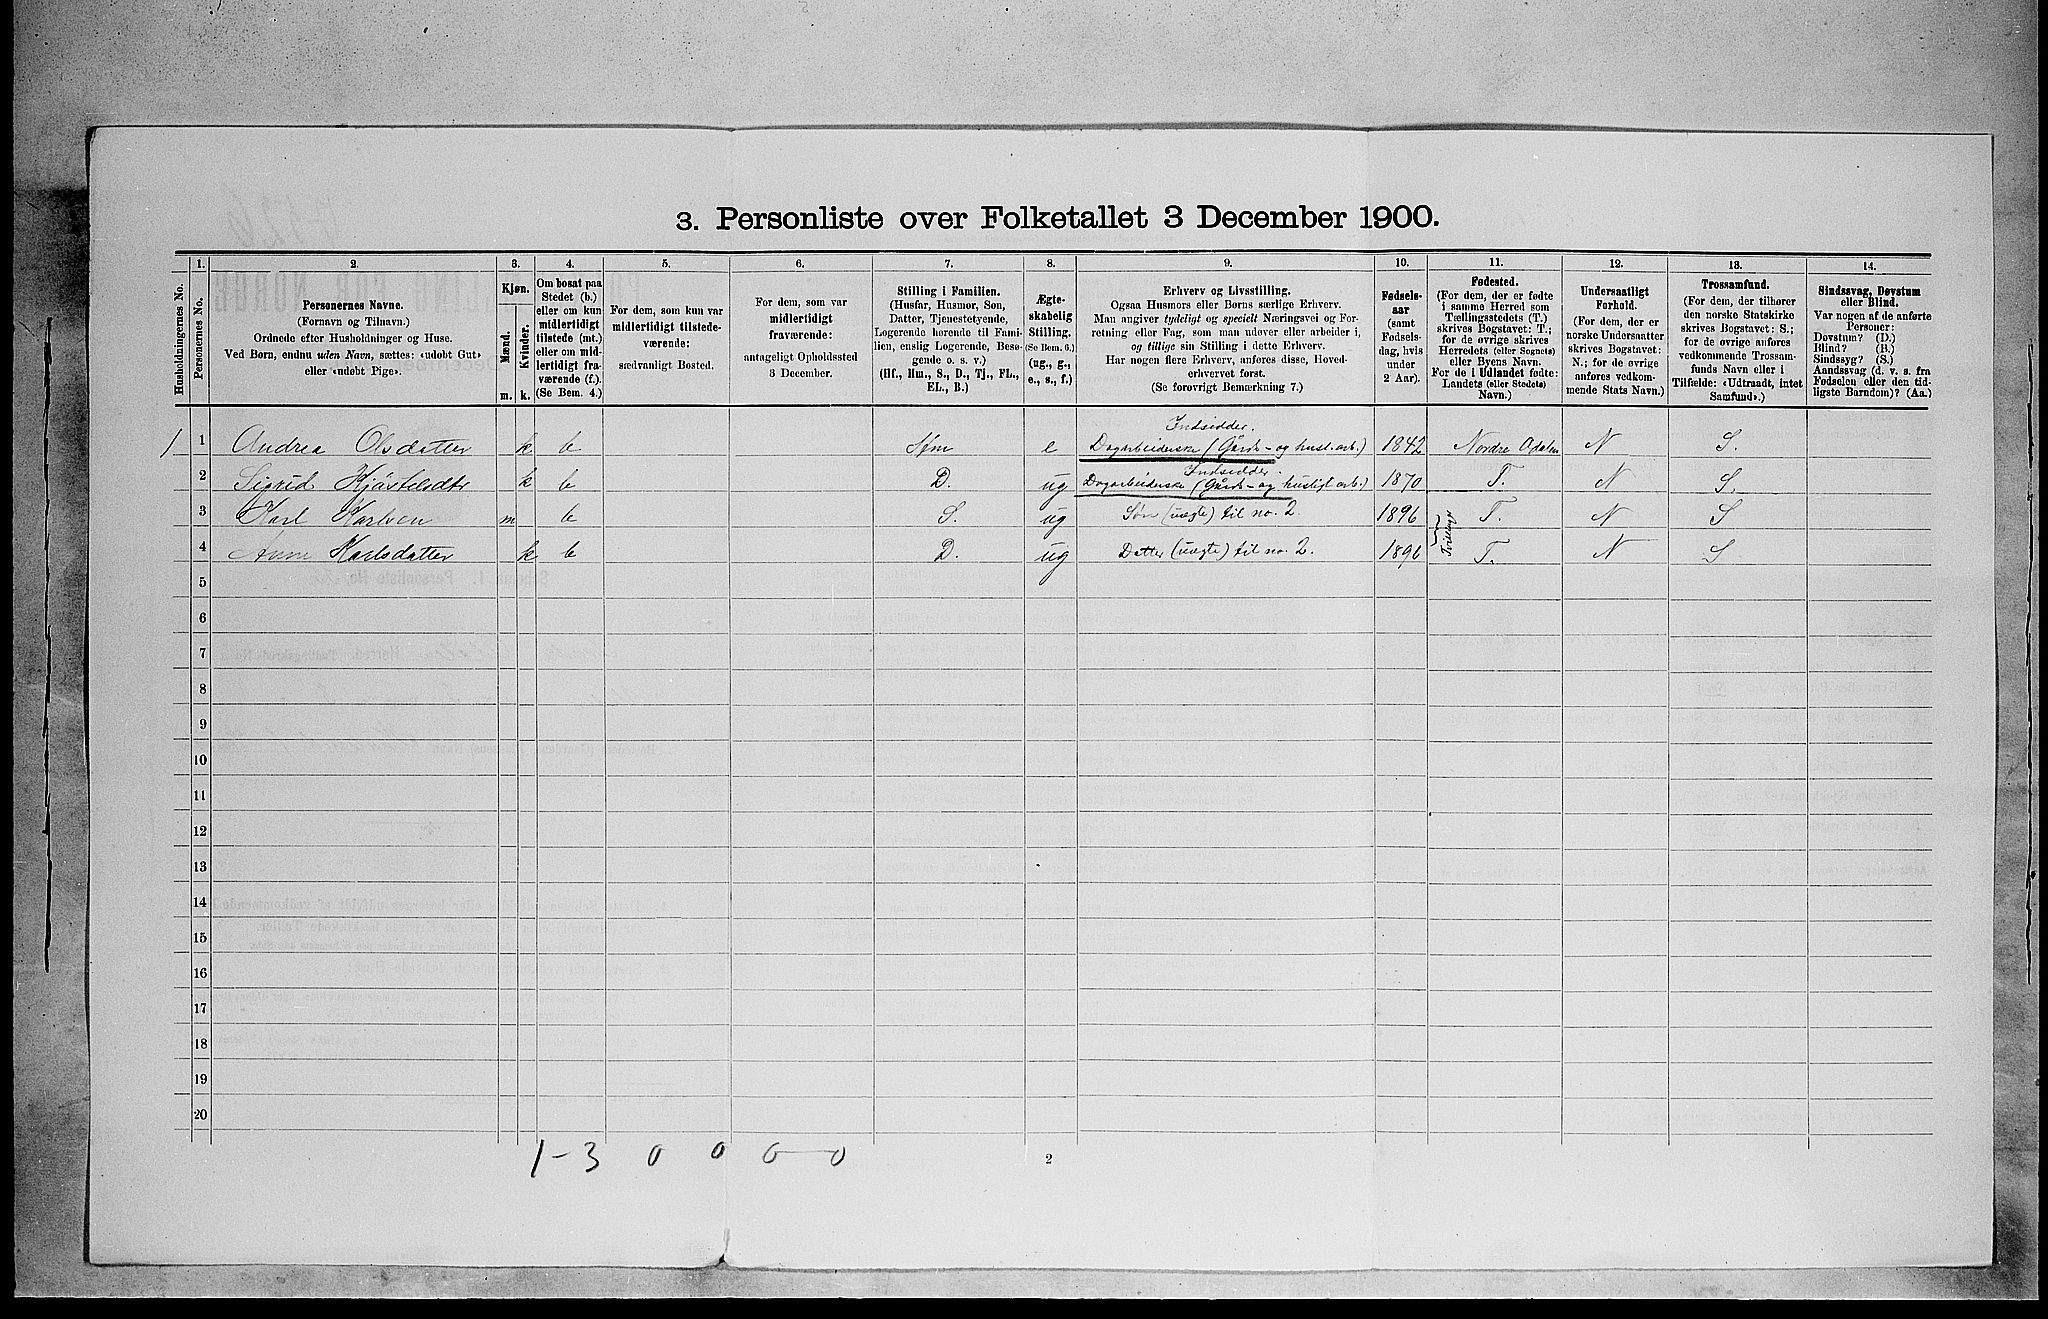 3. Personliste over Folketallet 3 December 1900.
Husholdningernes No.
1.
Personernes No.
2.
Personernes Navne.
(Fornavn og Tilnavn.)
Ordnede efter Husholdninger og Huse.
Ved Børn, endnu uden Navn, sættes: «udøbt Gut»
eller «udøbt Pige».
3.
Kjøn.
Mænd.
Kvinder.
m.
k.
4.
Om bosat paa
Stedet (b.)
eller om kun
midlertidigt
tilstede (mt.)
eller om mid-
lertidigt fra-
værende (f.).
(Se Bem. 4.)
5.
For dem, som kun var
midlertidigt tilstede-
værende:
sædvanligt Bosted.
6.
For dem, som var
midlertidigt
fraværende:
antageligt Opholdssted
3 December.
7.
Stilling i Familien.
(Husfar, Husmor, Søn,
Datter, Tjenestetyende,
Logerende hørende til Fami-
lien, enslig Logerende, Besø-
gende o. s. v.)
(Hf., Hm., S., D., Tj., FL.,
EL., B.)
8.
Ægte-
skabelig
Stilling.
(Se Bem. 6.)
(ug., g.,
e., s., f.)
9.
Erhverv og Livsstilling.
Ogsaa Husmors eller Børns særlige Erhverv.
Man angiver tydeligt og specielt Næringsvei og For-
retning eller Fag, som man udøver eller arbeider i,
og tillige sin Stilling i dette Erhverv.
Har nogen flere Erhverv, anføres disse, Hoved-
erhvervet først.
(Se forøvrigt Bemærkning 7.)
10.
Fødsels-
aar
(samt
Fødsels-
dag, hvis
under
2 Aar).
11.
Fødested.
(For dem, der er fødte
i samme Herred som
Tællingsstedets (T.)
skrives Bogstavet: T.;
for de øvrige skrives
Herredets (eller Sognets)
eller Byens Navn.
For de i Udlandet fødte:
Landets (eller Stedets)
Navn.)
12.
Undersaatligt
Forhold.
(For dem, der er
norske Undersaatter
skrives Bogstavet:
N.; for de øvrige
anføres vedkom-
mende Stats Navn.)
13.
Trossamfund.
(For dem, der tilhører
den norske Statskirke
skrives Bogstavet: S.;
for de øvrige anføres
vedkommende Trossam-
funds Navn eller i
Tilfælde: «Udtraadt, intet
Samfund».)
14.
Sindssvag, Døvstum
eller Blind.
Var nogen af de anførte
Personer:
Døvstum? (D.)
Blind? (B.)
Sindssyg? (S.)
Aandssvag (d. v. s. fra
Fødselen eller den tid-
ligste Barndom)? (Aa.)
Indsidder.
1 1 Andrea Olsdatter k b Hm e Dagarbeiderske (Gårds- og husl. arb.) 1842 Nordre Odalen N S.
Indsidder.
2 Sigrid Kjøstelsdtr k b D. ug Dagarbeiderske (Gårds- og husligt arb.) 1870 T. N S.
3 Karl Karlsen m b S. ug Søn (uægte) til no. 2. 1896 T. N S
Tvillinger
4 Anne Karlsdatter k b D. ug Datter (uægte) til no. 2. 1896 T. N S
5
6
7
8
9
10
11
12
13
14
15
16
17
18
19
20
1-3 0 0 0-0
2